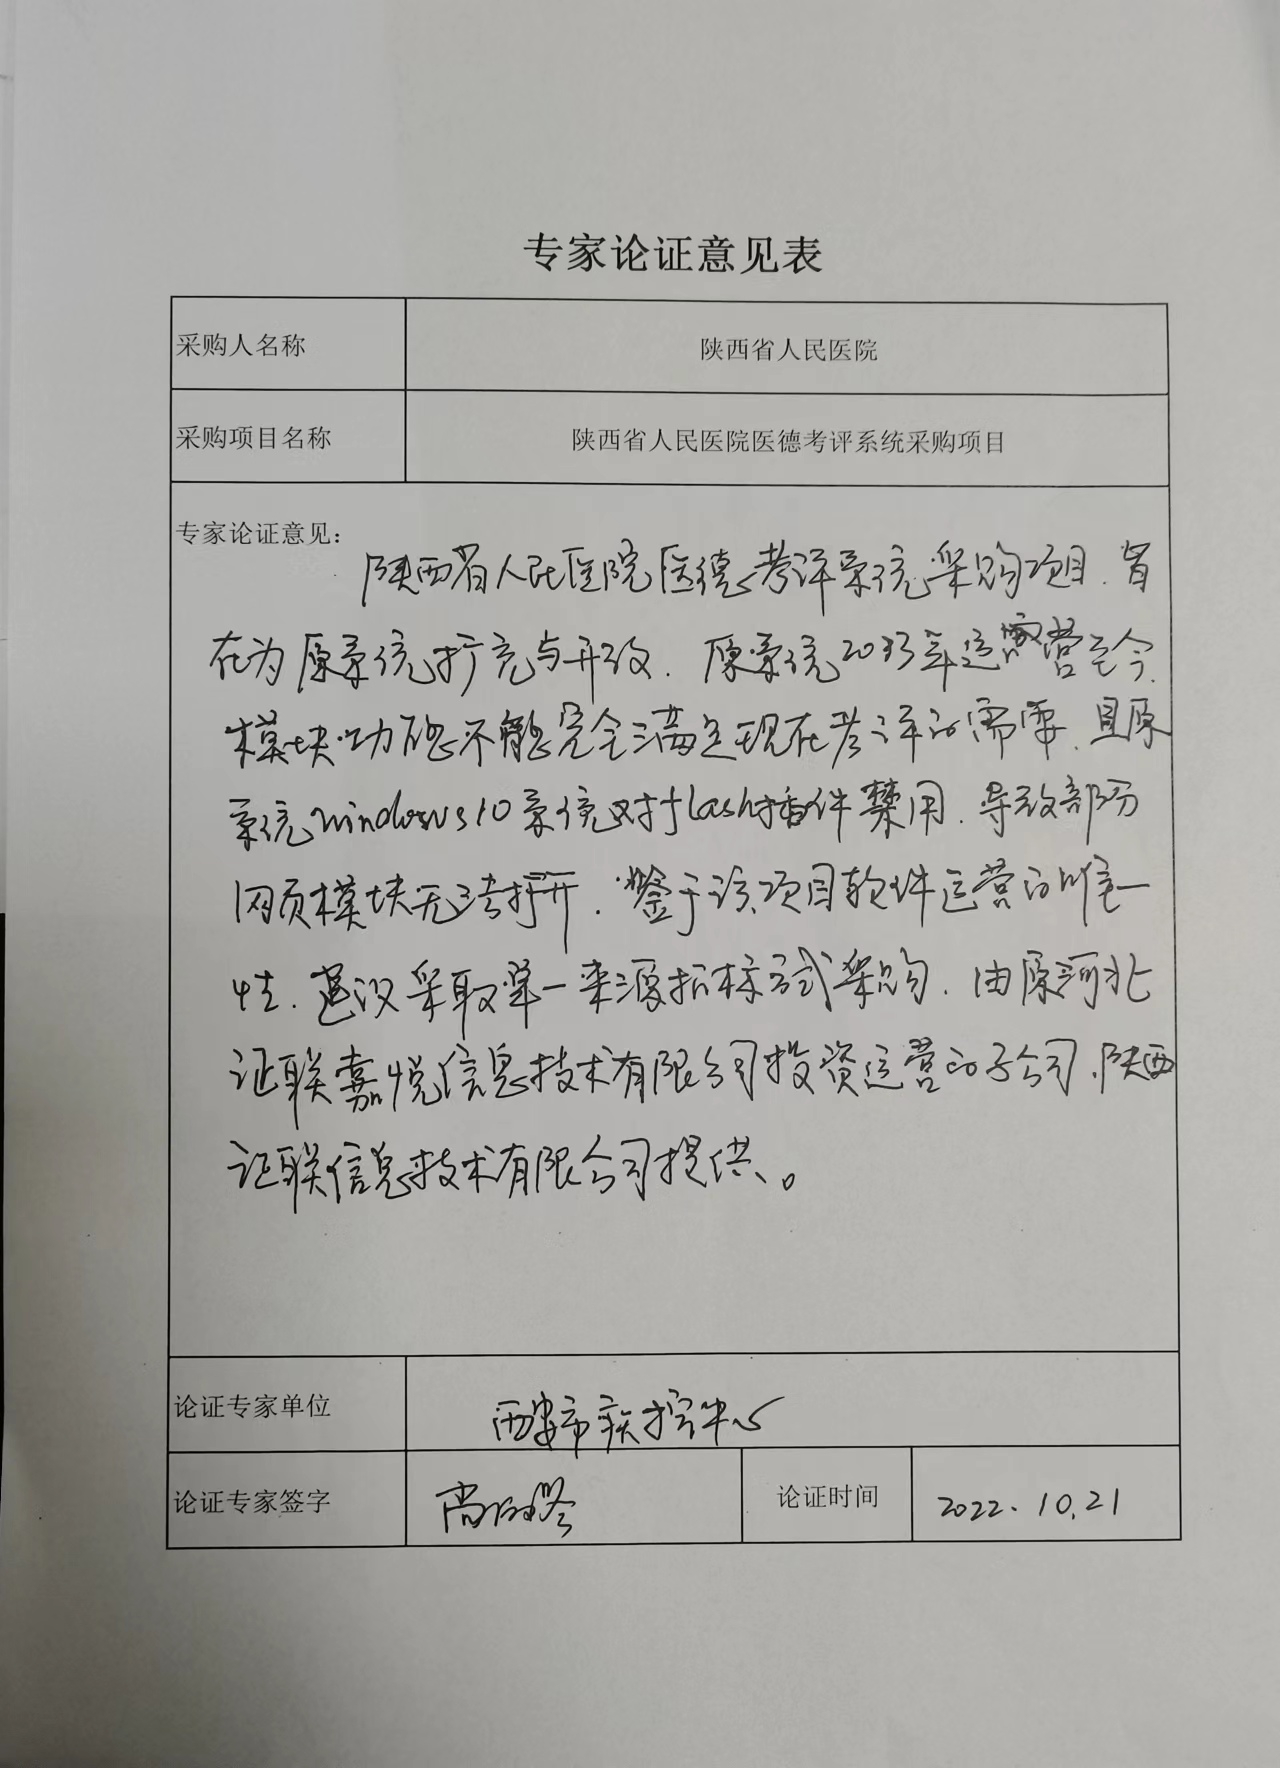 专家论证意见表
采购人名称
陕西省人民医院
采购项目名称
陕西省人民医院医德考评系统采购项目
专家论证意见：
陕西省人民医院医德考评系统采购项目，旨
在为原系统扩充与升改，原系统20 年运营至今，
模块功能不能完全满足现在考评的需要，且原
系统windows10系统对flash插件禁用，导致部分
网页模块无法打开，鉴于该项目软件运营的唯一
性，建议采取单一来源招标方式采购，由原河北
证联嘉悦信息技术有限公司投资运营的子公司，陕西
证联信息技术有限公司提供。
论证专家单位
西安市疾控中心
论证专家签字
尚
论证时间
2022.10.21